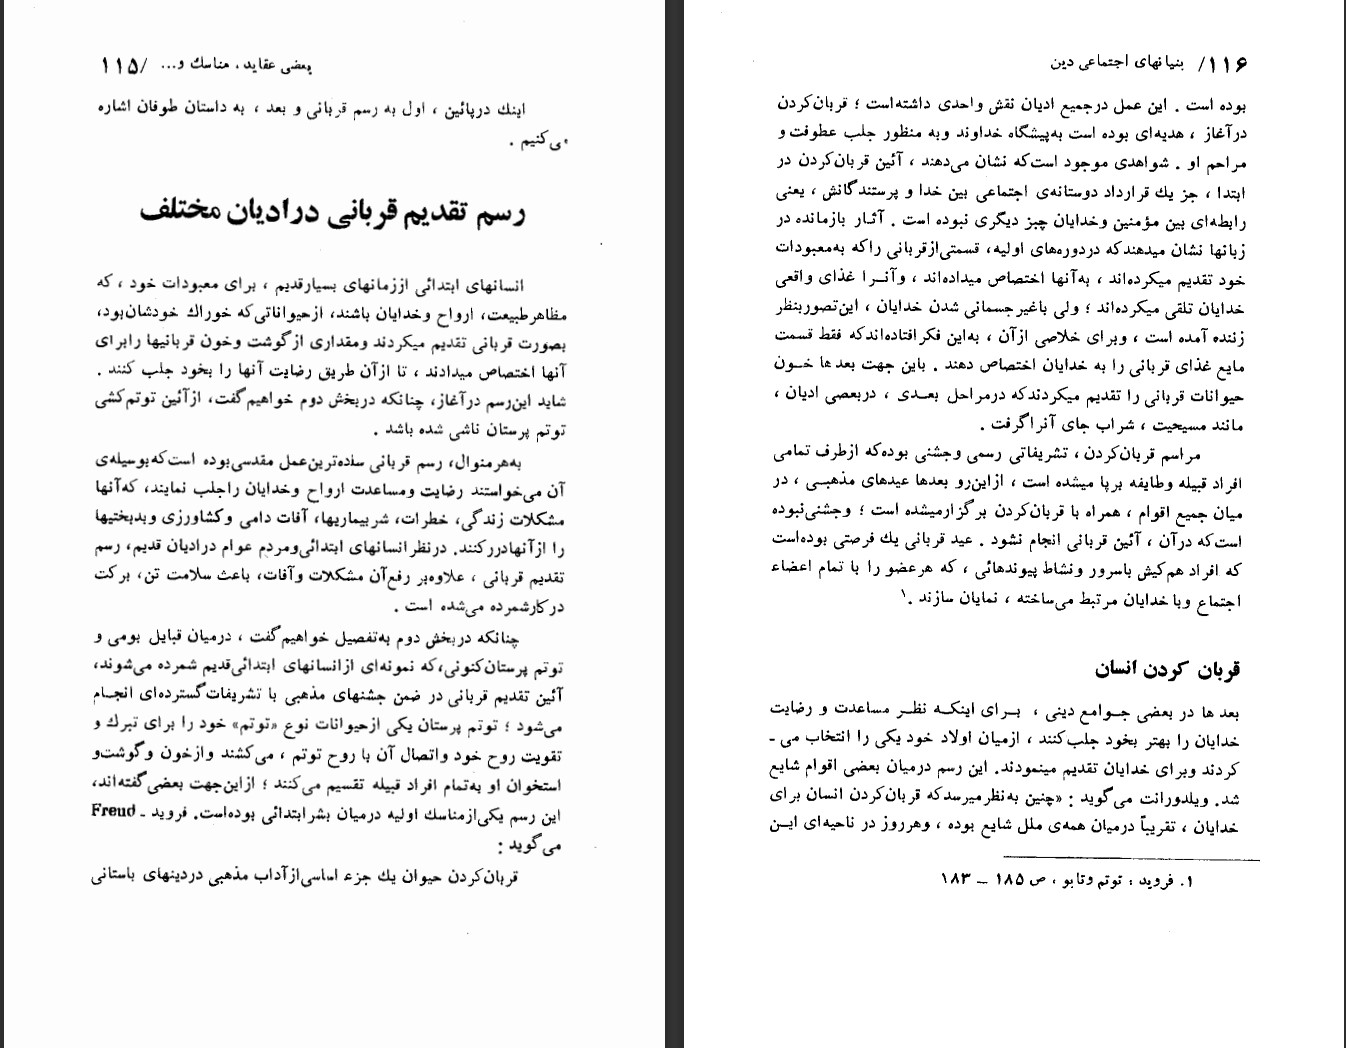 بعضی عقاید، مناسك و... /۱۱۵
اینك درپائین ، اول به رسم قربانی و بعد ، به داستان طوفان اشاره
می‌کنیم .
رسم تقدیم قربانی درادیان مختلف
انسانهای ابتدائی اززمانهای بسیارقدیم ، برای معبودات خود ، که
مظاهرطبیعت، ارواح وخدایان باشند، ازحیواناتی‌که خوراك خودشان‌بود،
بصورت قربانی تقدیم میکردند ومقداری ازگوشت وخون قربانیها رابرای
آنها اختصاص میدادند ، تا ازآن طریق رضایت آنها را بخود جلب کنند .
شاید این‌رسم درآغاز، چنانکه دربخش دوم خواهیم‌گفت، ازآئین توتم‌کشی
توتم پرستان ناشی شده باشد .
به‌هرمنوال، رسم قربانی ساده‌ترین‌عمل مقدسی‌بوده است‌که‌بوسیله‌ی
آن می‌خواستند رضایت ومساعدت ارواح وخدایان راجلب نمایند، که‌آنها
مشکلات زندگی، خطرات، شربیماریها، آفات دامی وکشاورزی وبدبختیها
را ازآنهادررکنند. درنظرانسانهای ابتدائی‌ومردم عوام درادیان قدیم، رسم
تقدیم قربانی ، علاوه‌بر رفع‌آن مشکلات وآفات، باعث سلامت تن، برکت
درکارشمرده می‌شده است .
چنانکه دربخش دوم به‌تفصیل خواهیم‌گفت ، درمیان قبایل بومی و
توتم پرستان‌کنونی،که نمونه‌ای ازانسانهای ابتدائی‌قدیم شمرده می‌شوند،
آئین تقدیم قربانی در ضمن جشنهای مذهبی با تشریفات‌گسترده‌ای انجام
می‌شود ؛ توتم پرستان یکی ازحیوانات نوع «توتم» خود را برای تبرك و
تقویت روح خود واتصال آن با روح توتم ، می‌کشند وازخون وگوشت‌و
استخوان او به‌تمام افراد قبیله تقسیم می‌کنند ؛ ازاین‌جهت بعضی‌گفته‌اند،
این رسم یکی‌ازمناسك اولیه درمیان بشرابتدائی بوده‌است. فروید ـ Freud
می‌گوید :
قربان‌کردن حیوان یك جزء اساسی‌ازآداب مذهبی دردینهای باستانی
۱۱۶/ بنیانهای اجتماعی دین
بوده است . این عمل درجمیع ادیان نقش واحدی داشته‌است ؛ قربان‌کردن
درآغاز ، هدیه‌ای بوده است به‌پیشگاه خداوند وبه منظور جلب عطوفت و
مراحم او . شواهدی موجود است‌که نشان می‌دهند ، آئین قربان‌کردن در
ابتدا ، جز یك قرارداد دوستانه‌ی اجتماعی بین خدا و پرستندگانش ، یعنی
رابطه‌ای بین مؤمنین وخدایان چیز دیگری نبوده است . آثار بازمانده در
زبانها نشان میدهندکه دردوره‌های اولیه، قسمتی‌ازقربانی راکه به‌معبودات
خود تقدیم میکرده‌اند ، به‌آنها اختصاص میداده‌اند ، وآنرا غذای واقعی
خدایان تلقی میکرده‌اند ؛ ولی باغیرجسمانی شدن خدایان ، این‌تصوربنظر
زننده آمده است ، وبرای خلاصی ازآن ، به‌این فکرافتاده‌اندکه فقط قسمت
مایع غذای قربانی را به خدایان اختصاص دهند . باین جهت بعدها خون
حیوانات قربانی را تقدیم میکردندکه درمراحل بعدی ، دربعصی ادیان ،
مانند مسیحیت ، شراب جای آنراگرفت .
مراسم قربان‌کردن ، تشریفاتی رسمی وجشنی بوده‌که ازطرف تمامی
افراد قبیله وطایفه برپا میشده است ، ازاین‌رو بعدها عیدهای مذهبی ، در
میان جمیع اقوام ، همراه با قربان‌کردن برگزارمیشده است ؛ وجشنی‌نبوده
است‌که درآن ، آئین قربانی انجام نشود . عید قربانی یك فرصتی بوده‌است
که افراد هم‌کیش باسرور ونشاط پیوندهائی ، که هرعضو را با تمام اعضاء
اجتماع وبا خدایان مرتبط می‌ساخته ، نمایان سازند .۱
قربان کردن انسان
بعد ها در بعضی جوامع دینی ، برای اینکه نظر مساعدت و رضایت
خدایان را بهتر بخود جلب‌کنند ، ازمیان اولاد خود یکی را انتخاب می ـ
کردند وبرای خدایان تقدیم مینمودند. این رسم درمیان بعضی اقوام شایع
شد. ویلدورانت می‌گوید : «چنین به‌نظرمیرسدکه قربان‌کردن انسان برای
خدایان ، تقریباً درمیان همه‌ی ملل شایع بوده ، وهرروز در ناحیه‌ای این
۱. فروید : توتم وتابو ، ص ۱۸۵ ــ ۱۸۳